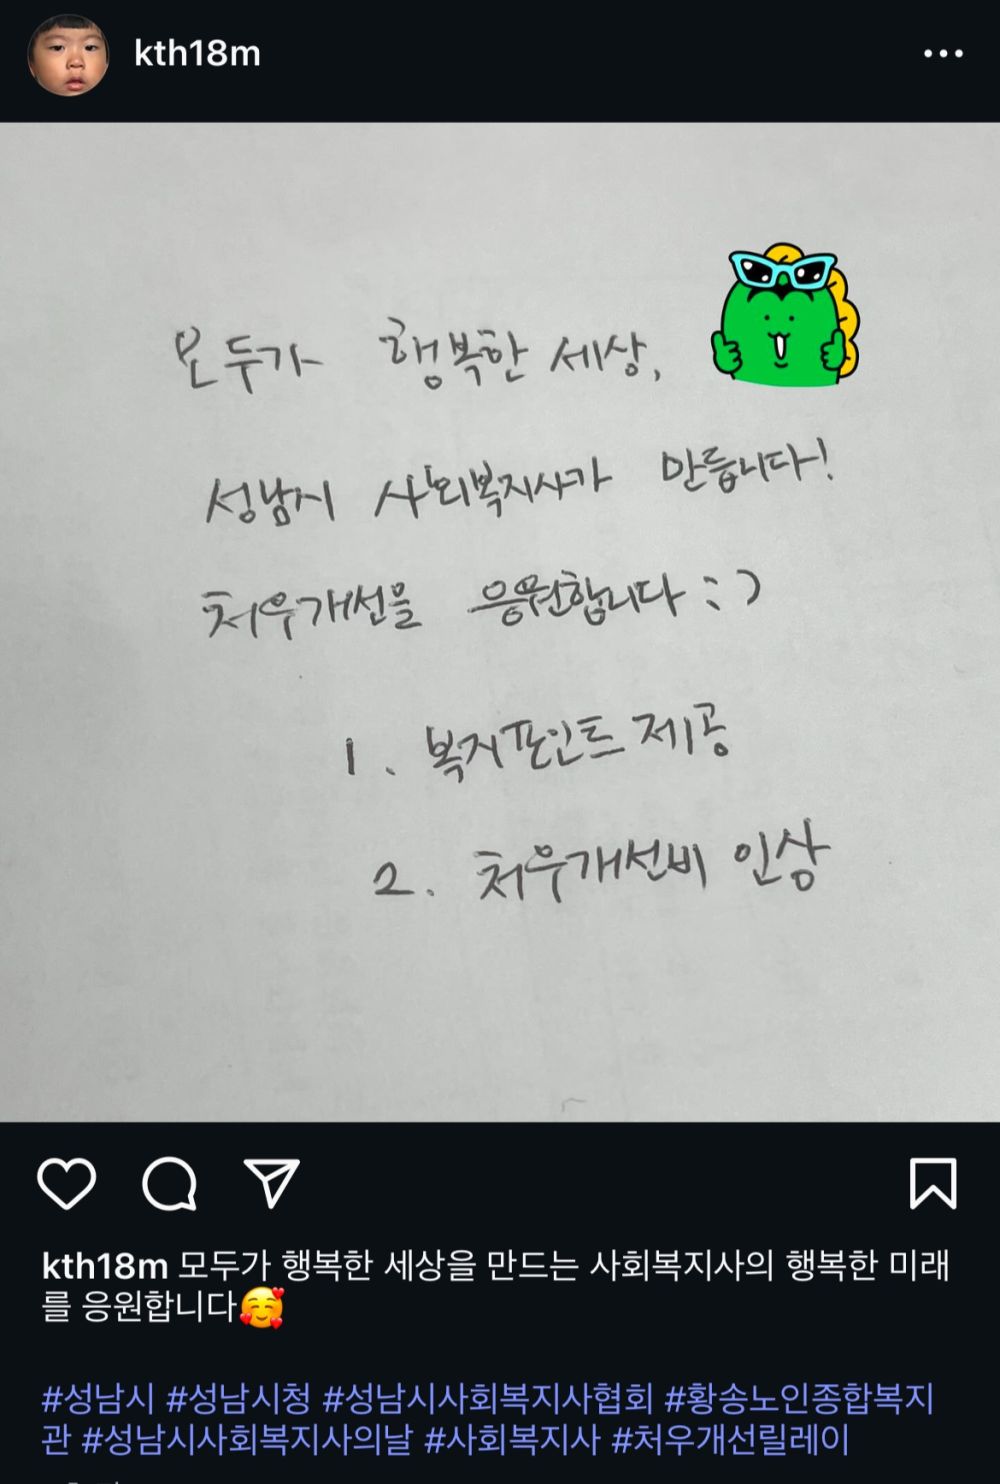 kth18m
모두가 행복한 세상,
성남시 사회복지사가 만듭니다!
처우개선을 응원합니다 :)
1. 복지포인트 제공
2. 처우개선비 인상
kth18m 모두가 행복한 세상을 만드는 사회복지사의 행복한 미래
를 응원합니다🥰
#성남시 #성남시청 #성남시사회복지사협회 #황송노인종합복지
관 #성남시사회복지사의날 #사회복지사 #처우개선릴레이